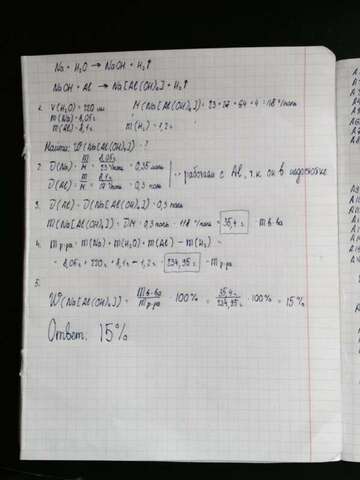 Na + H₂O → NaOH + H₂↑
NaOH + Al → Na[Al(OH)₄] + H₂↑
1. V(H₂O) = 220 мл M(Na[Al(OH)₄]) = 23 + 27 + 64 + 4 = 118 г/моль
m(Na) = 8,05г
m(Al) = 8,1г m(H₂) = 1,2г
Найти: W(Na[Al(OH)₄]) - ?
2. υ(Na) = m/M = 8,05г/23 г/моль = 0,35 моль
υ(Al) = m/M = 8,1г/27 г/моль = 0,3 моль
работаем с Al, т.к. он в недостатке
3. υ(Al) = υ(Na[Al(OH)₄]) = 0,3 моль
m(Na[Al(OH)₄]) = υM = 0,3 моль · 118 г/моль = 35,4 г - m в-ва
4. m р-ра = m(Na) + m(H₂O) + m(Al) - m(H₂) =
= 8,05г + 220г + 8,1г - 1,2г = 234,95г - m р-ра
5.
W(Na[Al(OH)₄]) = m в-ва/m р-ра · 100% = 35,4г/234,95г · 100% = 15%
Ответ: 15%